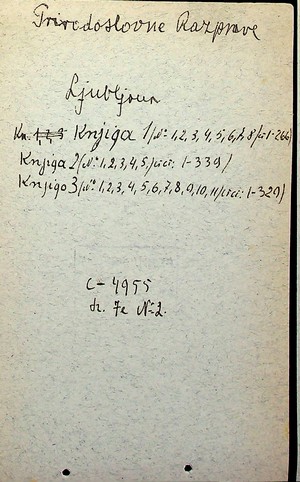 Prirodoslovne Razprave
Ljubljana
Kn. 1, 2, 3 Knjiga 1 (№ 1, 2, 3, 4, 5, 6, 7, 8 / 1-266)
Knjiga 2 (№ 1, 2, 3, 4, 5 / 1-339)
Knjiga 3 (№ 1, 2, 3, 4, 5, 6, 7, 8, 9, 10, 11 / 1-329)
C-4955
№ 2.